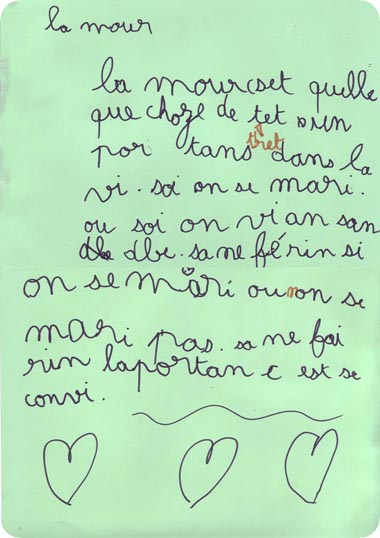 la mour
la mour cset quelle
que choze de tet sun
tret
por tans dans la
vi. soi on se mari.
ou soi on vi an san
dbe. sa ne fé rin si
on se mari ou non on se
mari pas. sa ne fai
rin laportan c est se
convi.